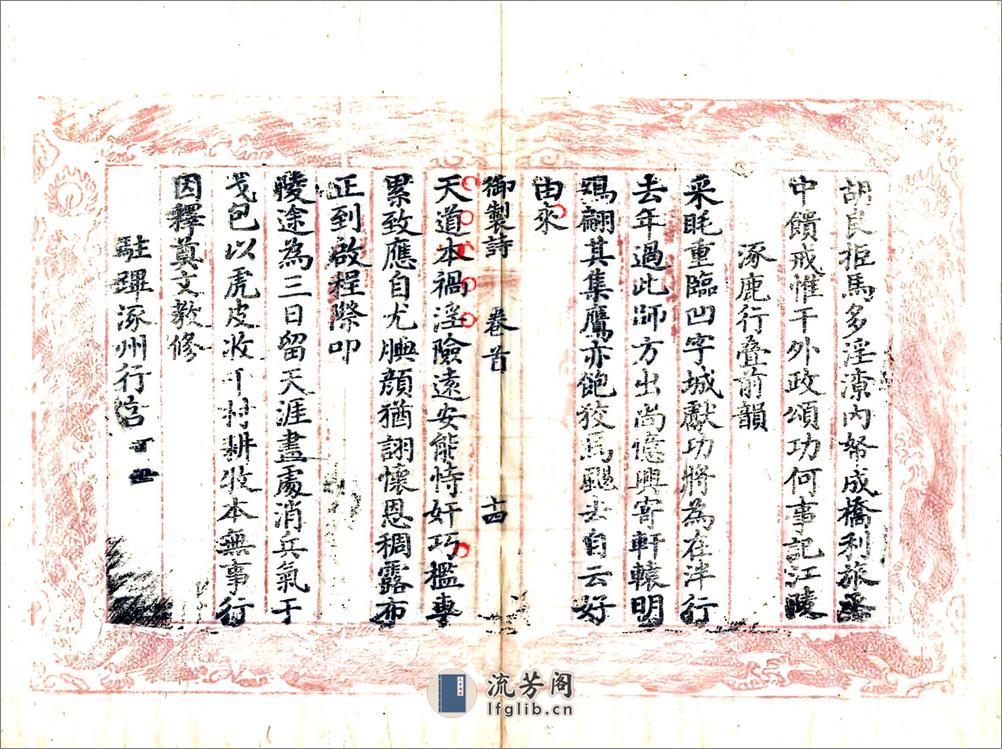 胡良拒馬多淫潦內帑成橋利旅
中饋戒惟干外政頌功何事記江陵
涿鹿行疊前韻
采眊重臨凹字城獻功將為在泮行
去年過此師方出尚憶興寄軒轅明
鴉翩其集鷹亦飽狡馬颺去自云好
由來
御製詩 卷首 十四
天道本禍淫險遠安能恃奸巧尷專
累致應自尤腆顏猶詡懷恩稠露布
正到啟程際叩
陵途為三日留天涯盡處消兵氣于
戈包以虎皮收千村耕牧本無事行
因釋奠文教修
駐蹕涿州行宮
流芳阁
lfglib.cn